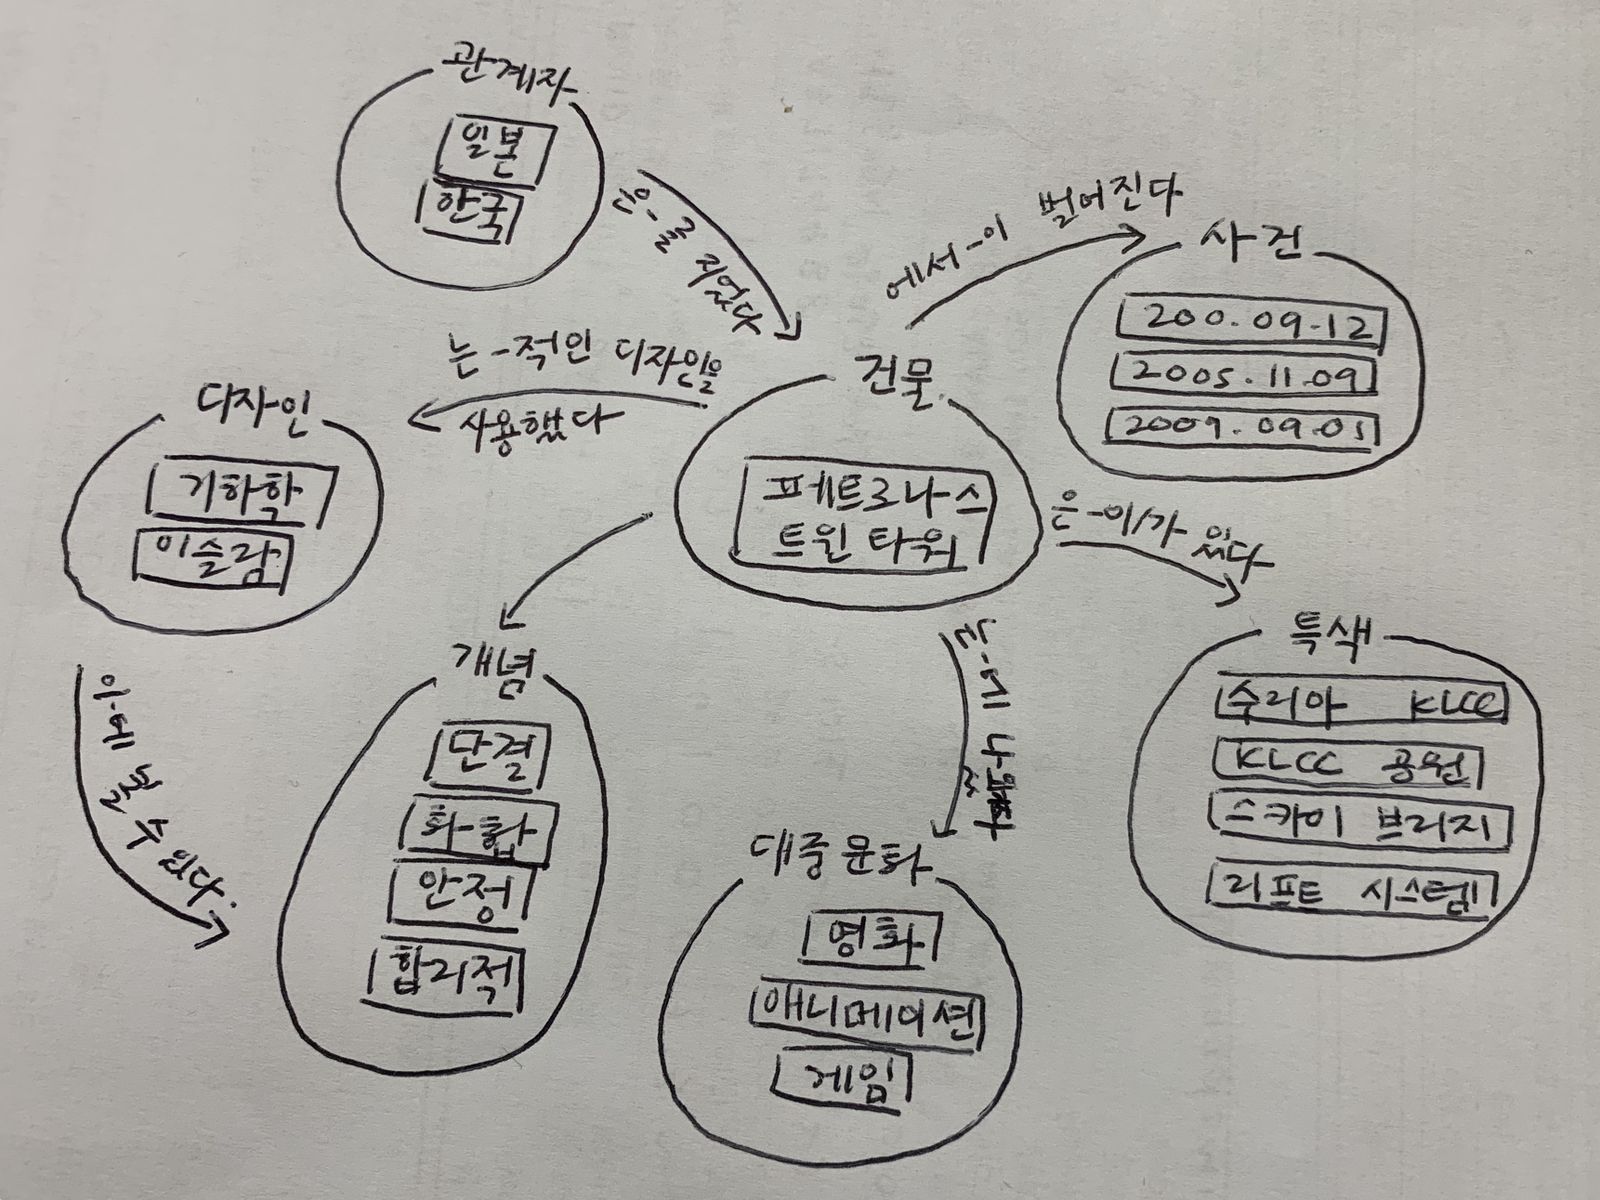 관계자
일본
한국
은 - 를 지었다
에서 - 이 벌어진다
사건
200.09.12
2005.11.09
2009.09.01
는 - 적인 디자인을
사용했다
건물
페트로나스
트윈 타워
디자인
기하학
이슬람
은 - 이/가 있다
특색
수리아 KLCC
KLCC 공원
스카이 브리지
리프트 시스템
개념
단결
화합
안정
합리적
수 있다.
대중문화
영화
애니메이션
게임